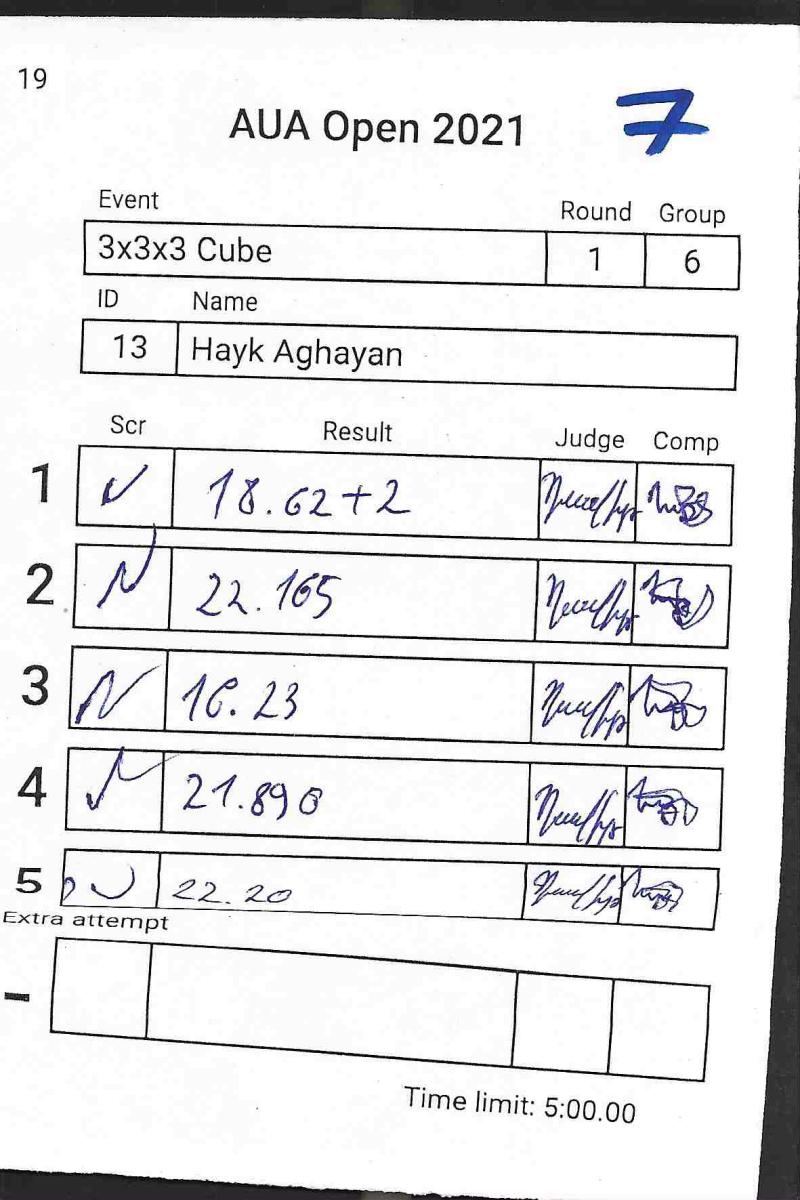 19
AUA Open 2021 7
Event Round Group
3x3x3 Cube 1 6
ID Name
13 Hayk Aghayan
Scr Result Judge Comp
1 18.62+2
2 22.165
3 16.23
4 21.890
5 22.20
Extra attempt
-
Time limit: 5:00.00